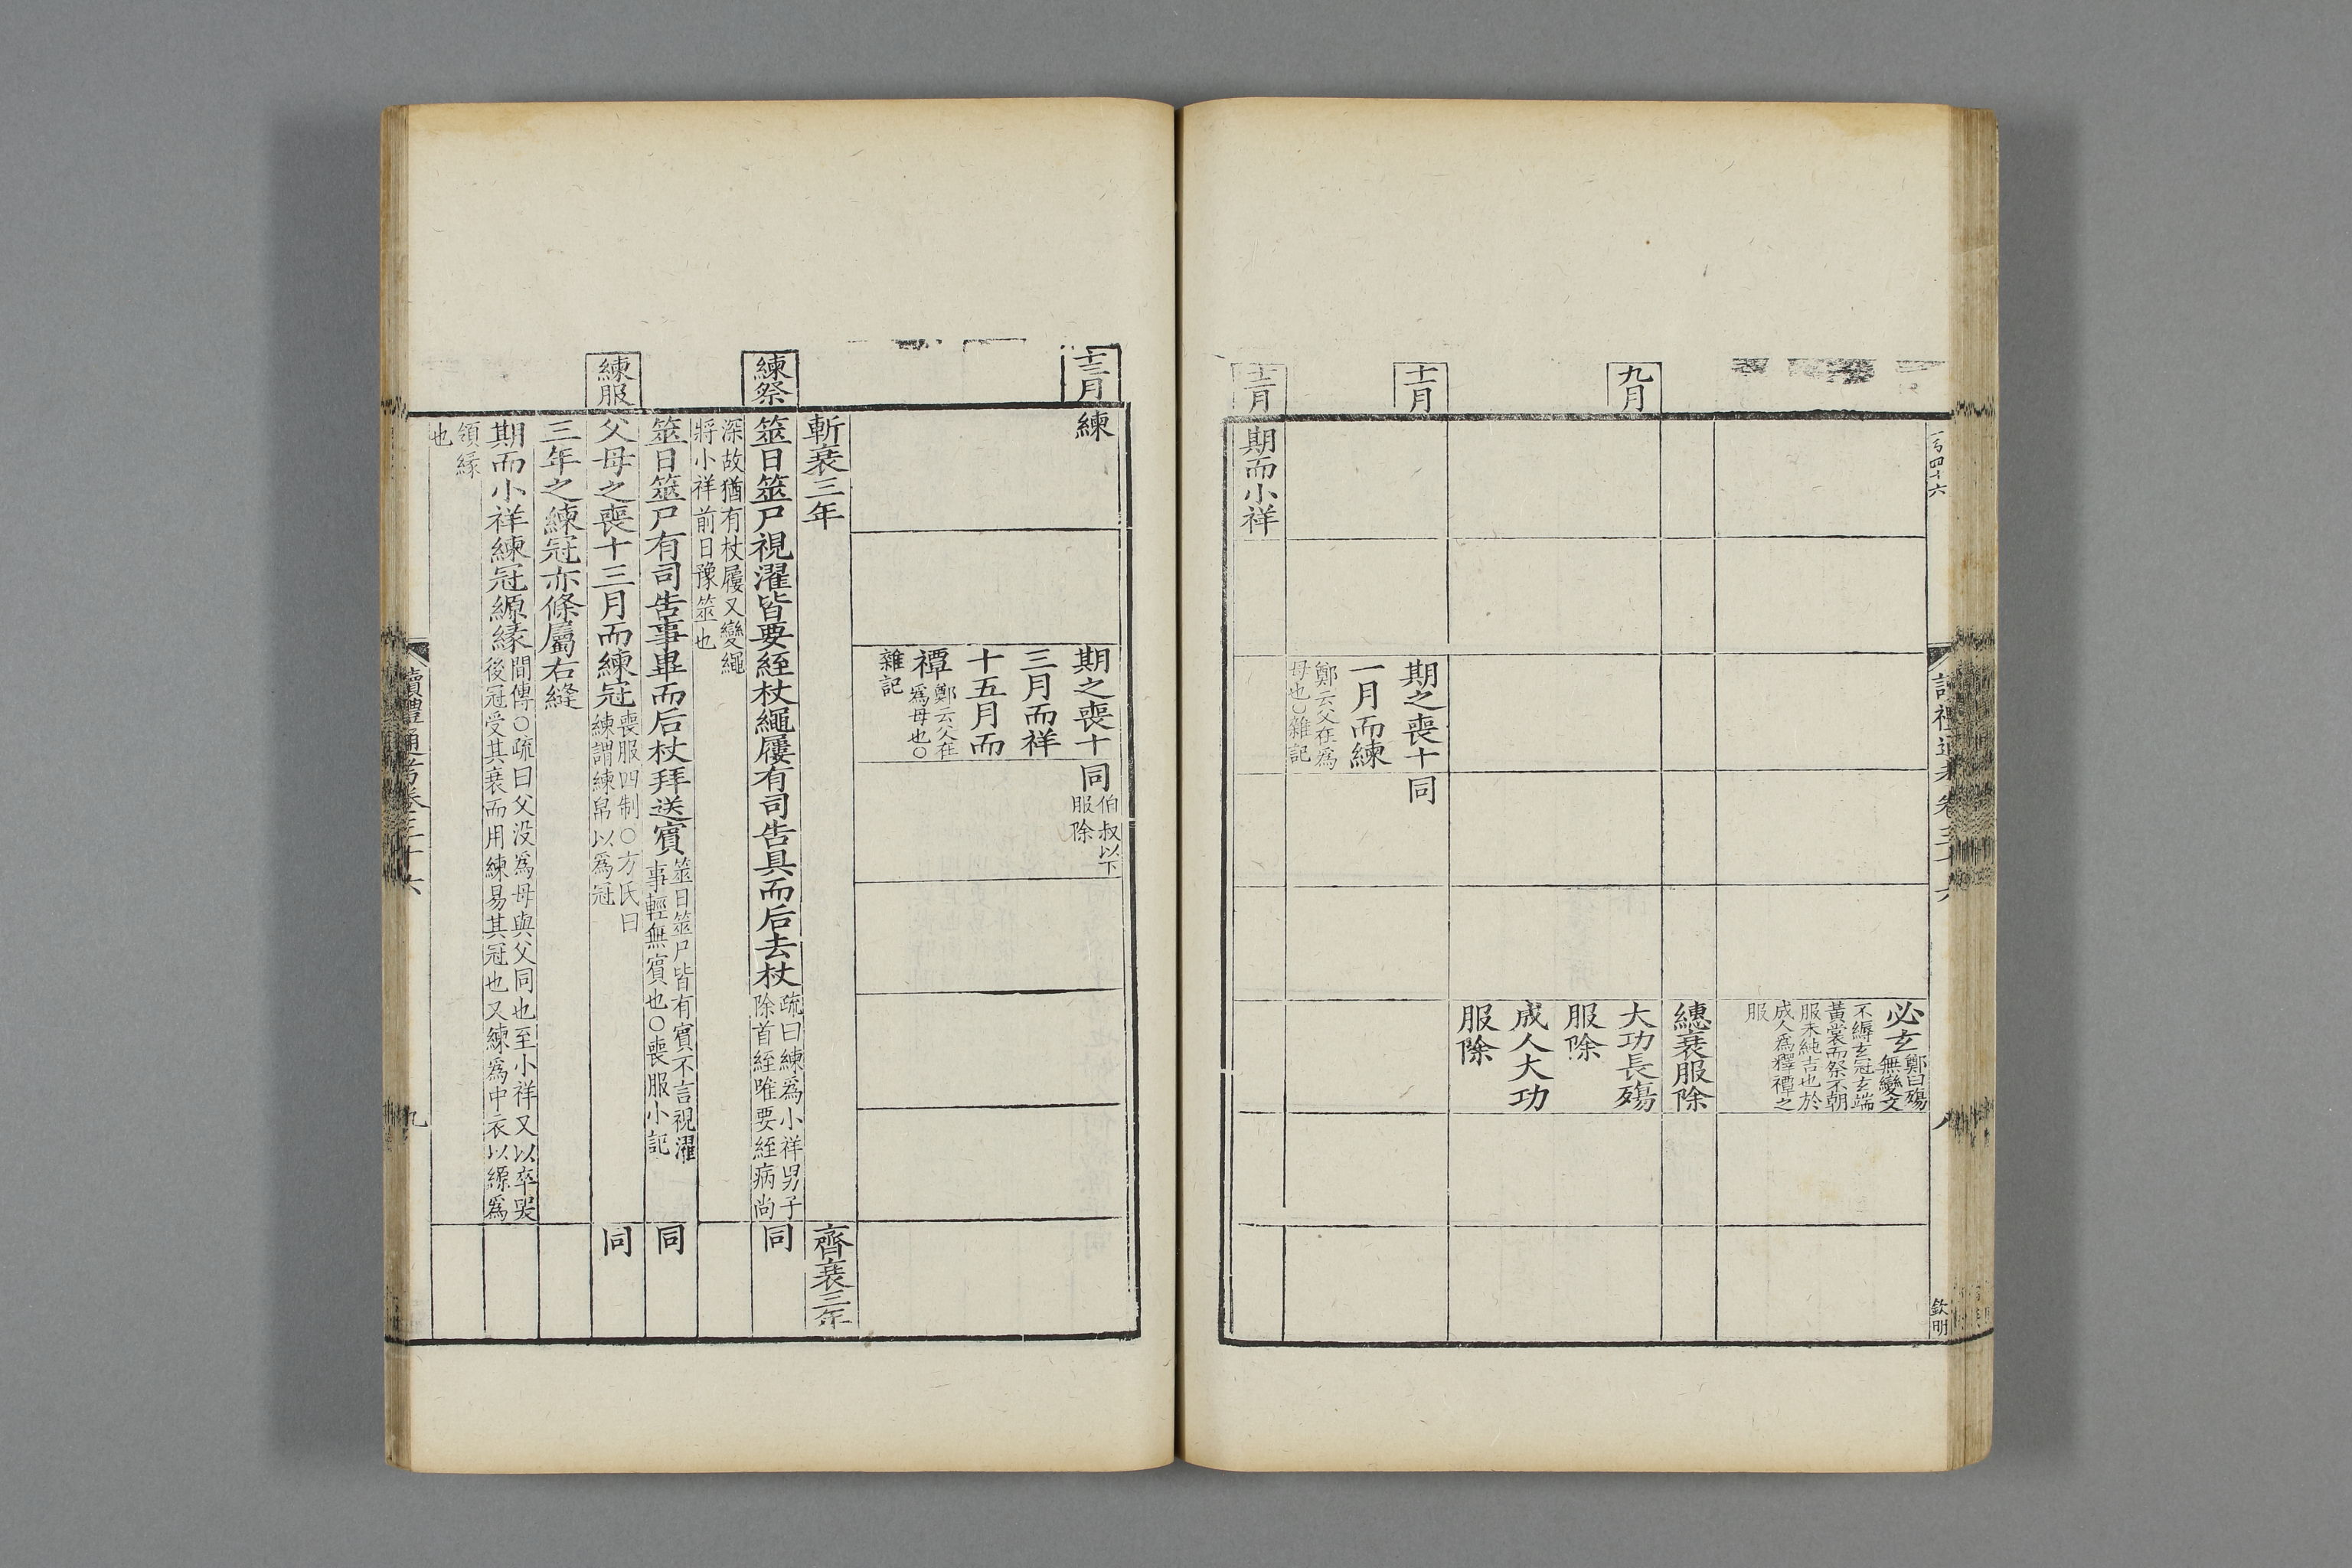 一百四十六
讀禮通考卷三十六
八
欽明
必玄鄭曰殤無變文
不縟玄冠玄端黃裳而祭不朝
服未純吉也於成人爲釋禫之
服
緦衰服除
九月
大功長殤
服除
成人大功
服除
十一月
期之喪十
一月而練
鄭云父在爲母也○雜記
同
十二月
期而小祥
十三月
練
期之喪十
三月而祥
十五月而
禫鄭云父在爲母也○
雜記
同伯叔以下服除
斬衰三年
齊衰三年
練祭
筮日筮尸視濯皆要絰杖繩屨有司告具而后去杖疏曰練爲小祥男子除首絰唯要絰病尚
同
深故猶有杖屨又變繩將小祥前日豫筮也
筮日筮尸有司告事畢而后杖拜送賓筮日筮尸皆有賓不言視濯事輕無賓也○喪服小記
同
練服
父母之喪十三月而練冠喪服四制○方氏曰練謂練帛以爲冠
同
三年之練冠亦條屬右縫
期而小祥練冠縓緣間傳○疏曰父没爲母與父同也至小祥又以卒哭後冠受其衰而用練易其冠也又練爲中衣以縓爲
領緣也
讀禮通考卷三十六
九